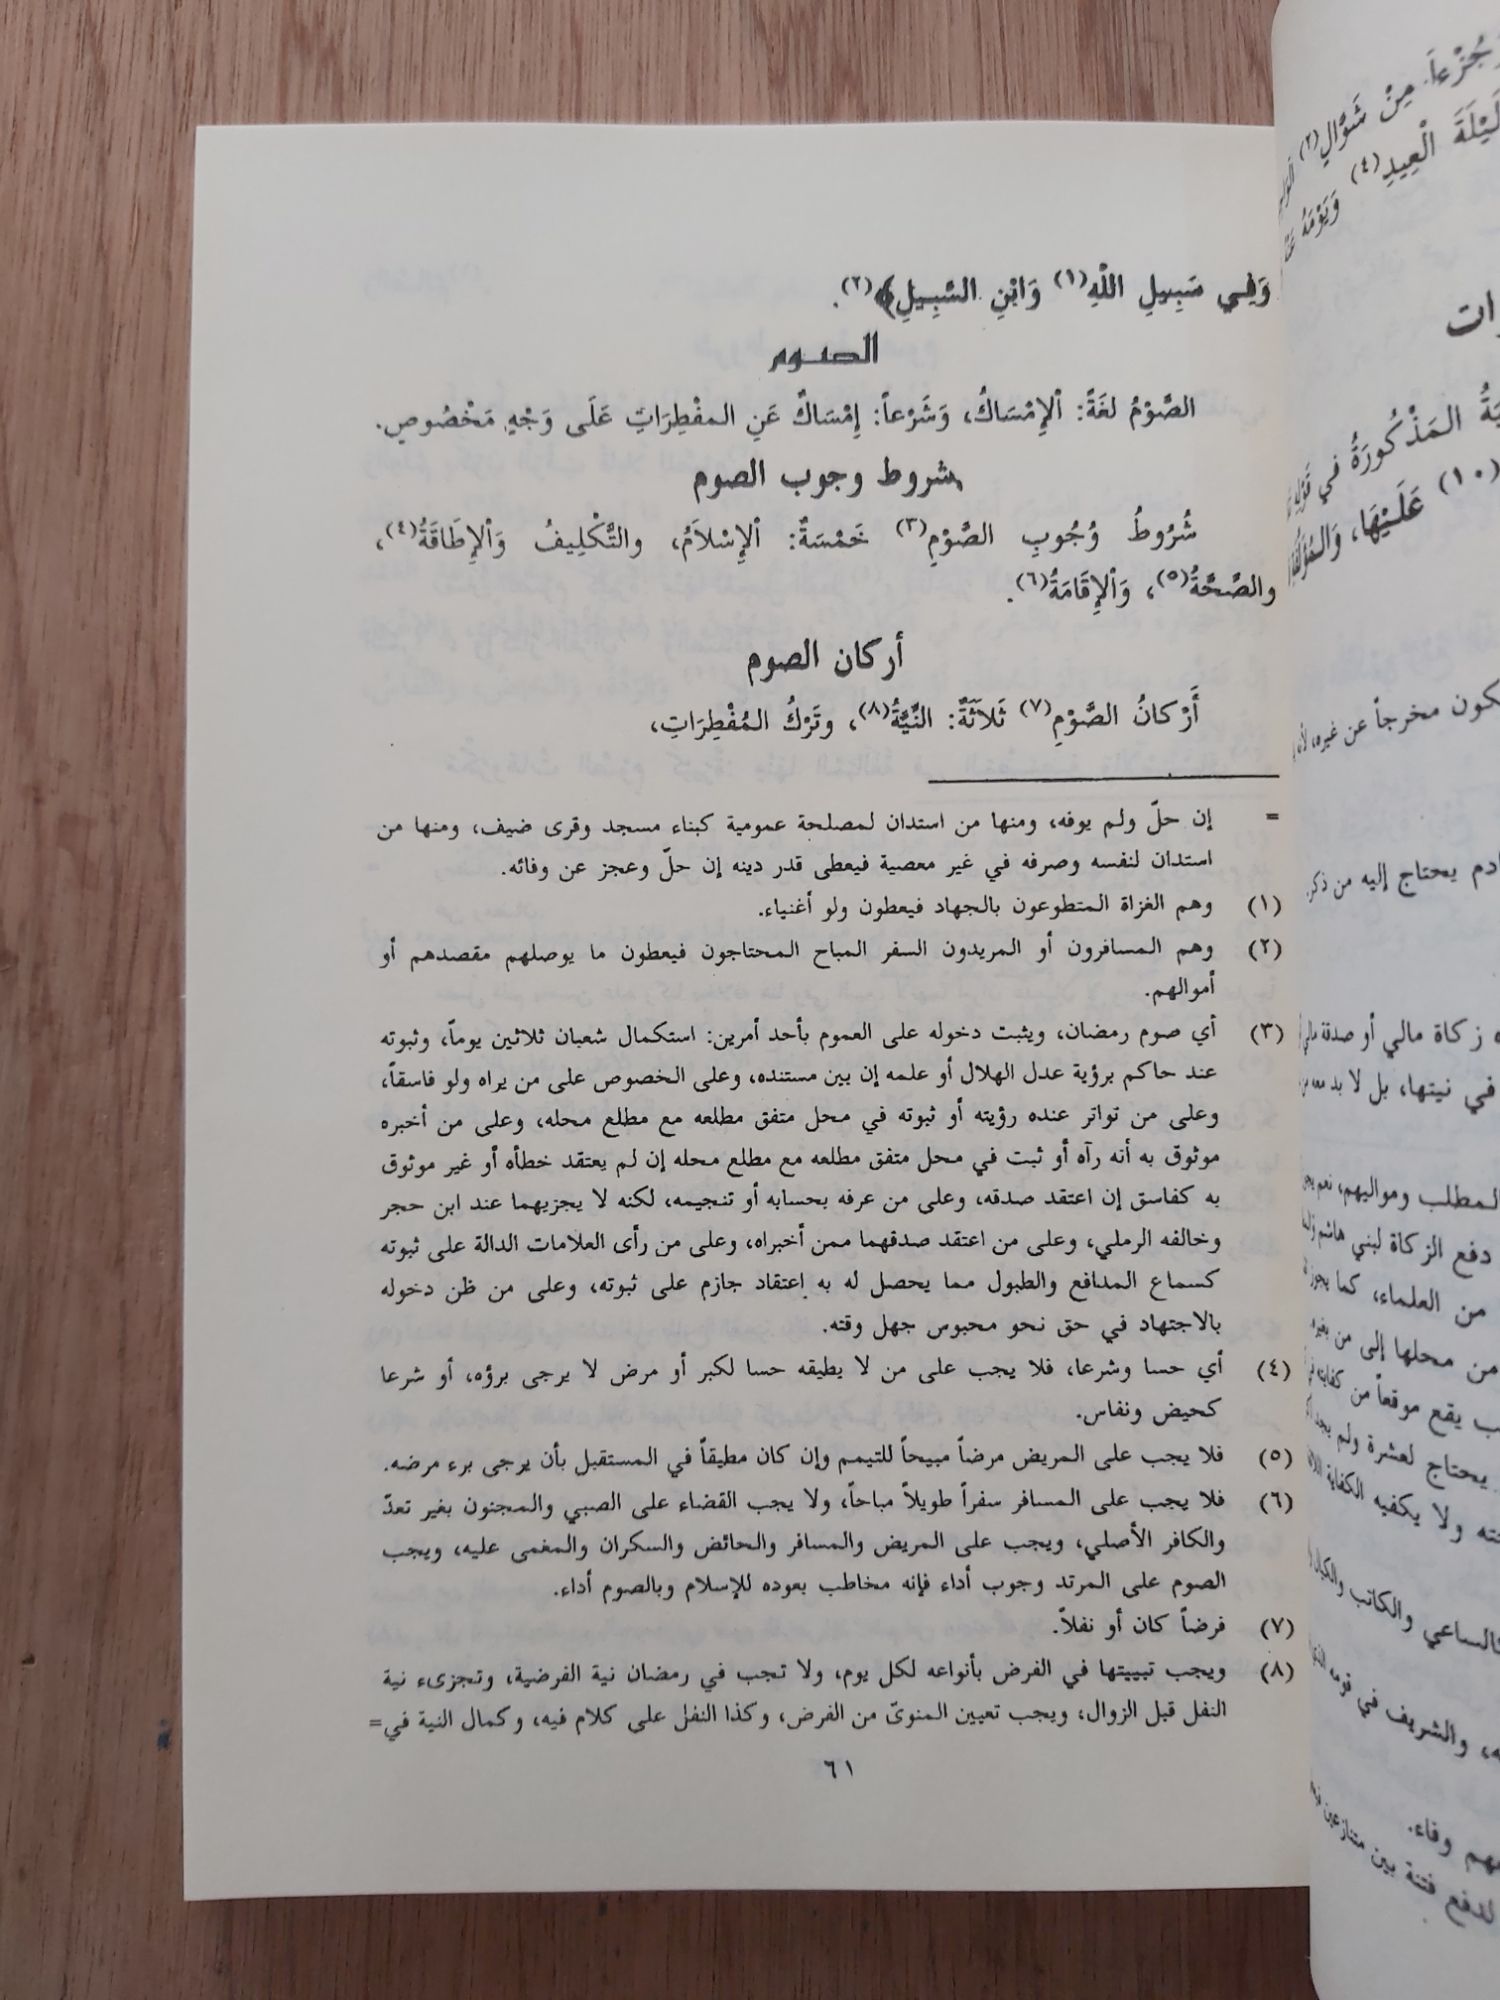 وَفِي سَبِيلِ اللّهِ(١) وَابْنِ السَّبِيلِ﴾(٢).
الصـوم
الصَّوْمُ لغَةً: اَلإِمْسَاكُ، وَشَرْعاً: إِمْسَاكٌ عَنِ المفْطِرَاتِ عَلَى وَجْهٍ مَخْصُوصٍ.
شروط وجوب الصوم
شُرُوطُ وُجُوبِ الصَّوْمِ(٣) خَمْسَةٌ: اَلإِسْلاَمُ، والتَّكْلِيفُ وَاَلإِطَاقَةُ(٤)،
والصِّحَّةُ(٥)، وَاَلإِقَامَةُ(٦).
أركان الصوم
أَرْكانُ الصَّوْمِ(٧) ثَلاَثَةٌ: النِّيَّةُ(٨)، وتَرْكُ المُفْطِرَاتِ،
= إن حلّ ولم يوفه، ومنها من استدان لمصلحة عمومية كبناء مسجد وقرى ضيف، ومنها من
استدان لنفسه وصرفه في غير معصية فيعطى قدر دينه إن حلّ وعجز عن وفائه.
(١) وهم الغزاة المتطوعون بالجهاد فيعطون ولو أغنياء.
(٢) وهم المسافرون أو المريدون السفر المباح المحتاجون فيعطون ما يوصلهم مقصدهم أو
أموالهم.
(٣) أي صوم رمضان، ويثبت دخوله على العموم بأحد أمرين: استكمال شعبان ثلاثين يوماً، وثبوته
عند حاكم برؤية عدل الهلال أو علمه إن بين مستنده، وعلى الخصوص على من يراه ولو فاسقاً،
وعلى من تواتر عنده رؤيته أو ثبوته في محل متفق مطلعه مع مطلع محله، وعلى من أخبره
موثوق به أنه رآه أو ثبت في محل متفق مطلعه مع مطلع محله إن لم يعتقد خطأه أو غير موثوق
به كفاسق إن اعتقد صدقه، وعلى من عرفه بحسابه أو تنجيمه، لكنه لا يجزيهما عند ابن حجر
وخالفه الرملي، وعلى من اعتقد صدقهما ممن أخبراه، وعلى من رأى العلامات الدالة على ثبوته
كسماع المدافع والطبول مما يحصل له به اعتقاد جازم على ثبوته، وعلى من ظن دخوله
بالاجتهاد في حق نحو محبوس جهل وقته.
(٤) أي حسا وشرعا، فلا يجب على من لا يطيقه حسا لكبر أو مرض لا يرجى برؤه، أو شرعا
كحيض ونفاس.
(٥) فلا يجب على المريض مرضاً مبيحاً للتيمم وإن كان مطيقاً في المستقبل بأن يرجى برء مرضه.
(٦) فلا يجب على المسافر سفراً طويلاً مباحاً، ولا يجب القضاء على الصبي والمجنون بغير تعدّ
والكافر الأصلي، ويجب على المريض والمسافر والحائض والسكران والمغمى عليه، ويجب
الصوم على المرتد وجوب أداء فإنه مخاطب بعوده للإسلام وبالصوم أداء.
(٧) فرضاً كان أو نفلاً.
(٨) ويجب تبييتها في الفرض بأنواعه لكل يوم، ولا تجب في رمضان نية الفرضية، وتجزىء نية
النفل قبل الزوال، ويجب تعيين المنويّ من الفرض، وكذا النفل على كلام فيه، وكمال النية في=
٦١
مِنْ شَوَّالٍ(٢)
لَيْلَةَ الْعِيدِ(٤) وَيَوْمَهُ
المَذْكُورَةُ في
(١٠) عَلَيْهَا،
كون مخرجاً عن غيره،
يحتاج إليه من ذكر
زكاة مالي أو صدقة مالي
في نيتها، بل لا بد معه
المطلب ومواليهم، نعم
دفع الزكاة لبني هاشم
من العلماء، كما يجوز
من محلها إلى من
يقع موقعاً من كفايته
يحتاج لعشرة ولم يجد
ولا يكفيه الكفاية
الساعي والكاتب والكيال
والشريف في قومه
وفاء.
لدفع فتنة بين متنازعين